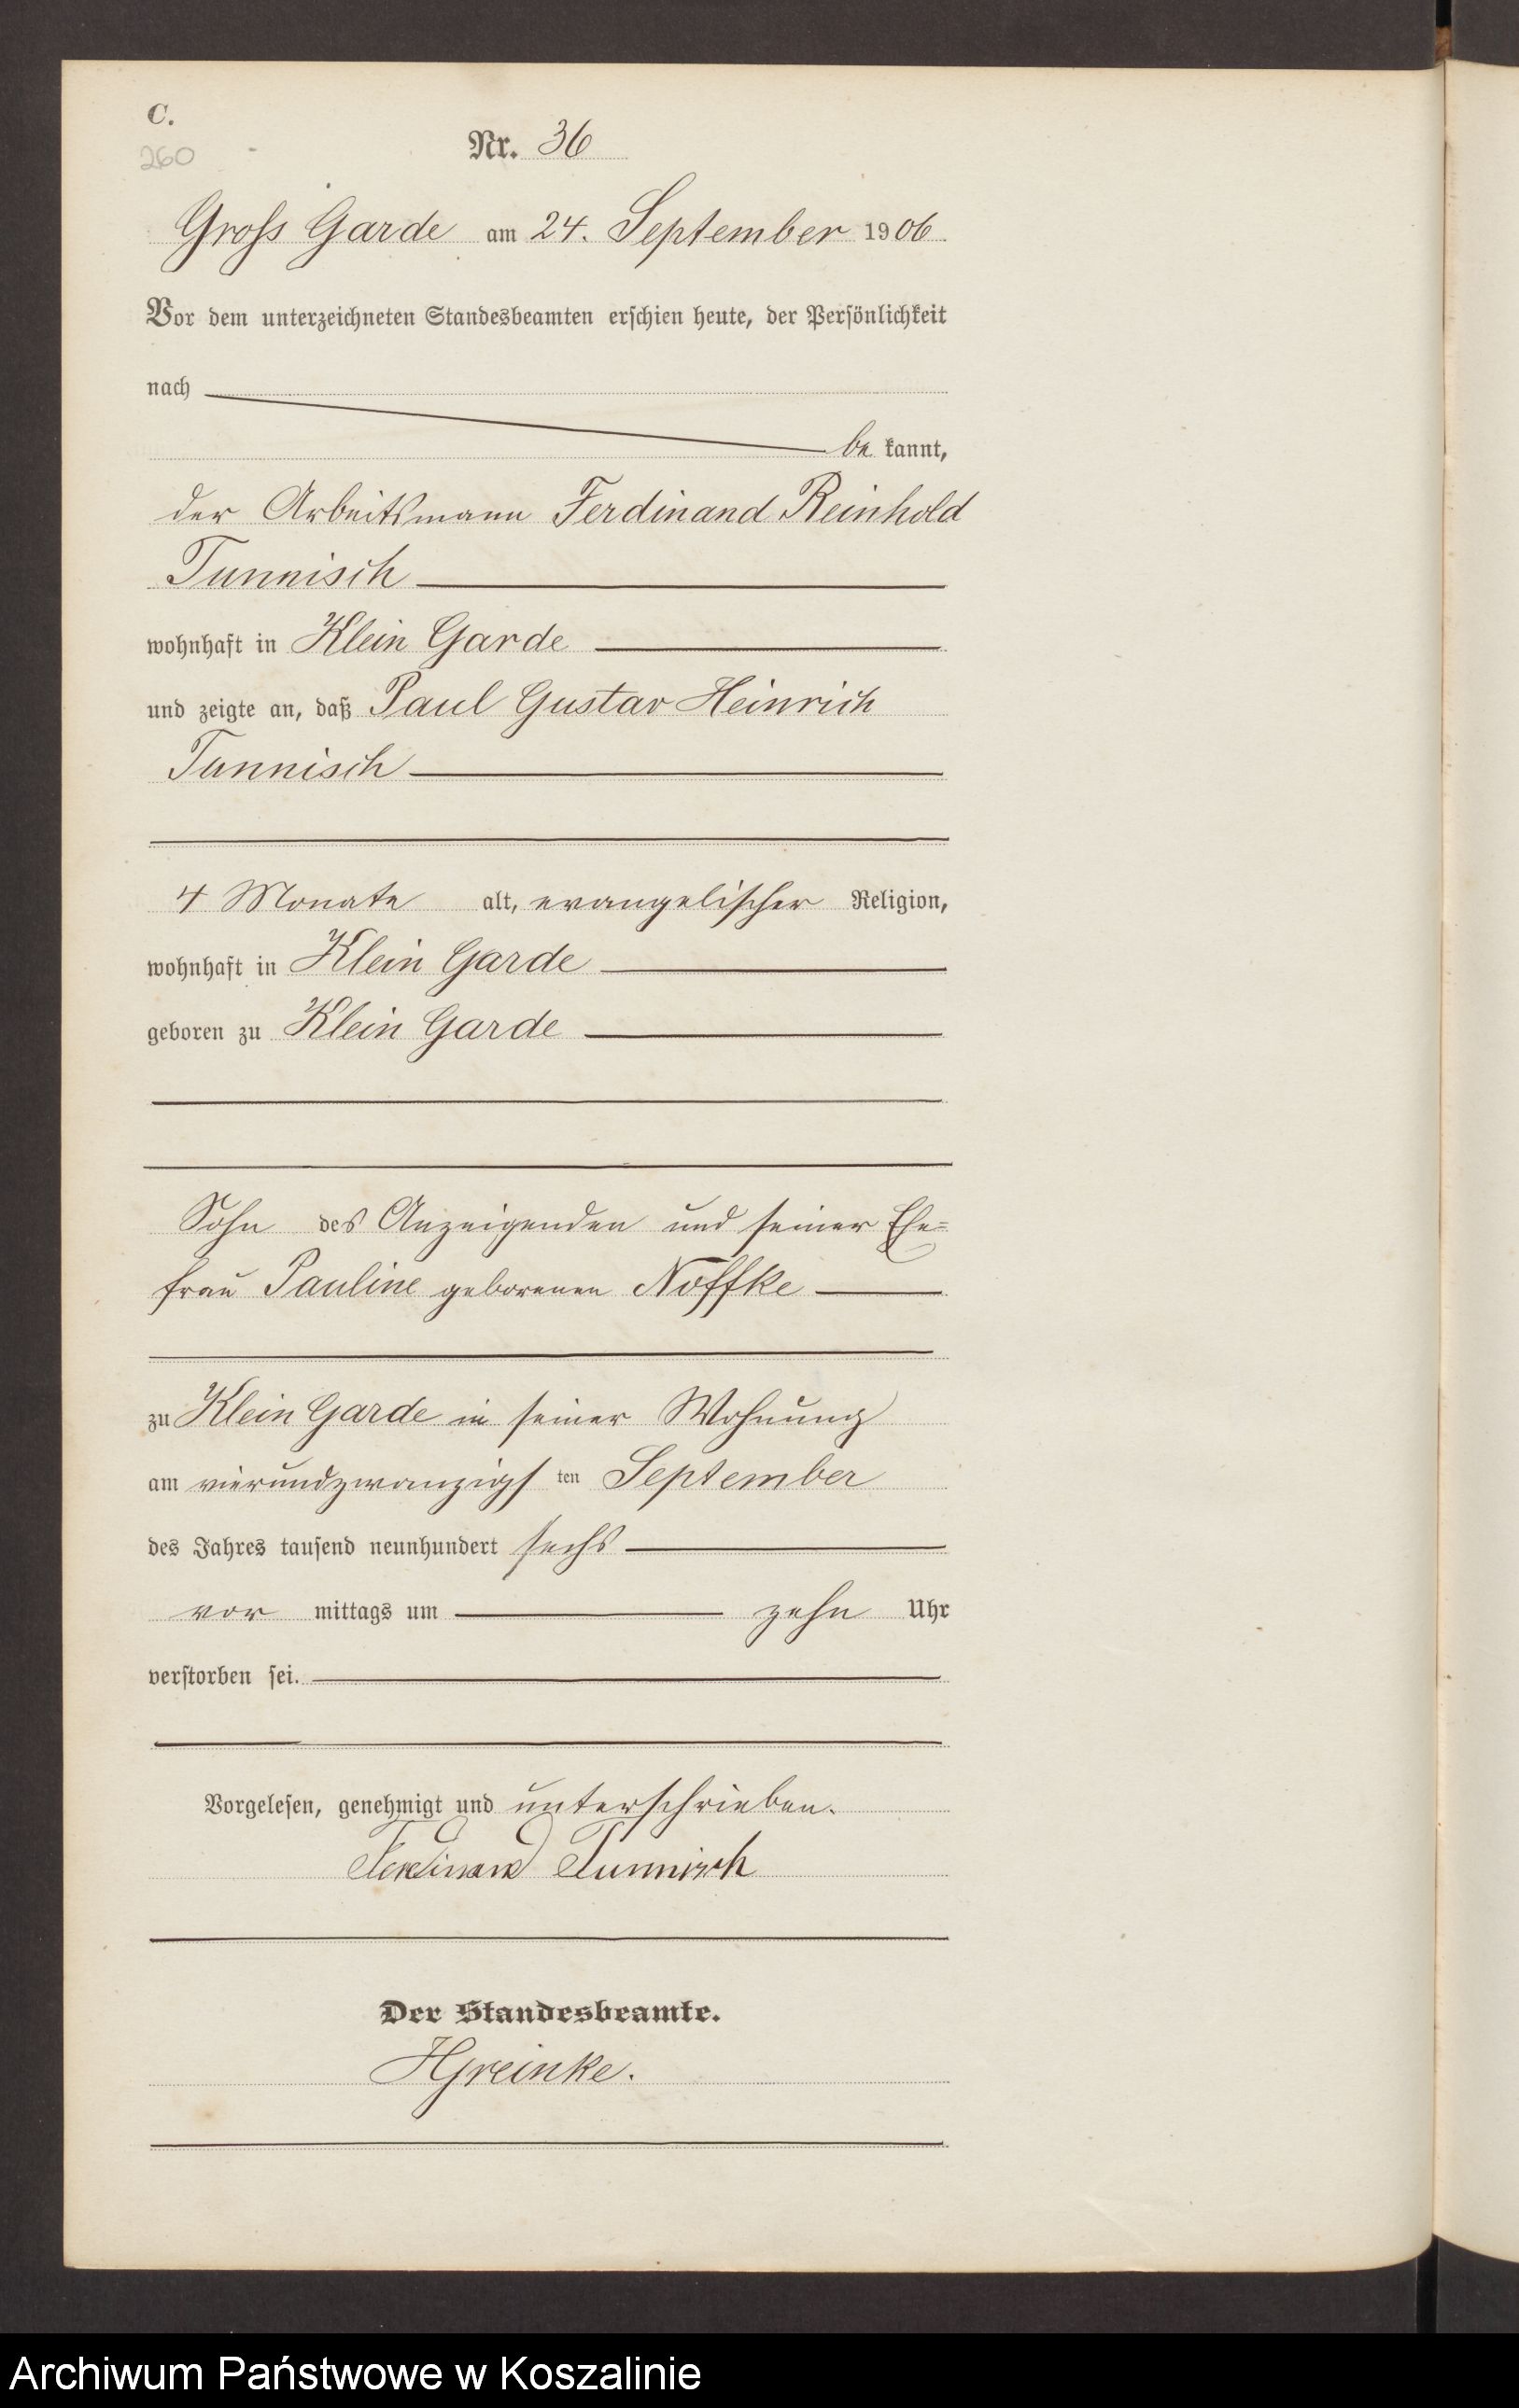 C.
260
Nr. 36
Gross Garde am 24. September 1906
Vor dem unterzeichneten Standesbeamten erschien heute, der Persönlichkeit
nach
be kannt,
der Arbeitsmann Ferdinand Reinhold
Tunnisch
wohnhaft in Klein Garde
und zeigte an, daß Paul Gustav Heinrich
Tunnisch
4 Monate alt, evangelischer Religion,
wohnhaft in Klein Garde
geboren zu Klein Garde
Sohn des Anzeigenden und seiner Ehe=
frau Pauline geborenen Noffke
zu Klein Garde in seiner Wohnung
am vierundzwanzigs ten September
des Jahres tausend neunhundert sechs
vor mittags um zehn Uhr
verstorben sei.
Vorgelesen, genehmigt und unterschrieben.
Ferdinand Tunnisch
Der Standesbeamte.
HGreinke.
Archiwum Państwowe w Koszalinie